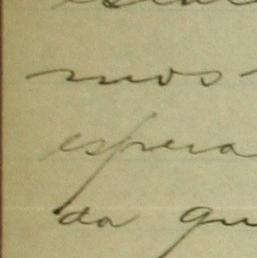 mos-
espera
da qu